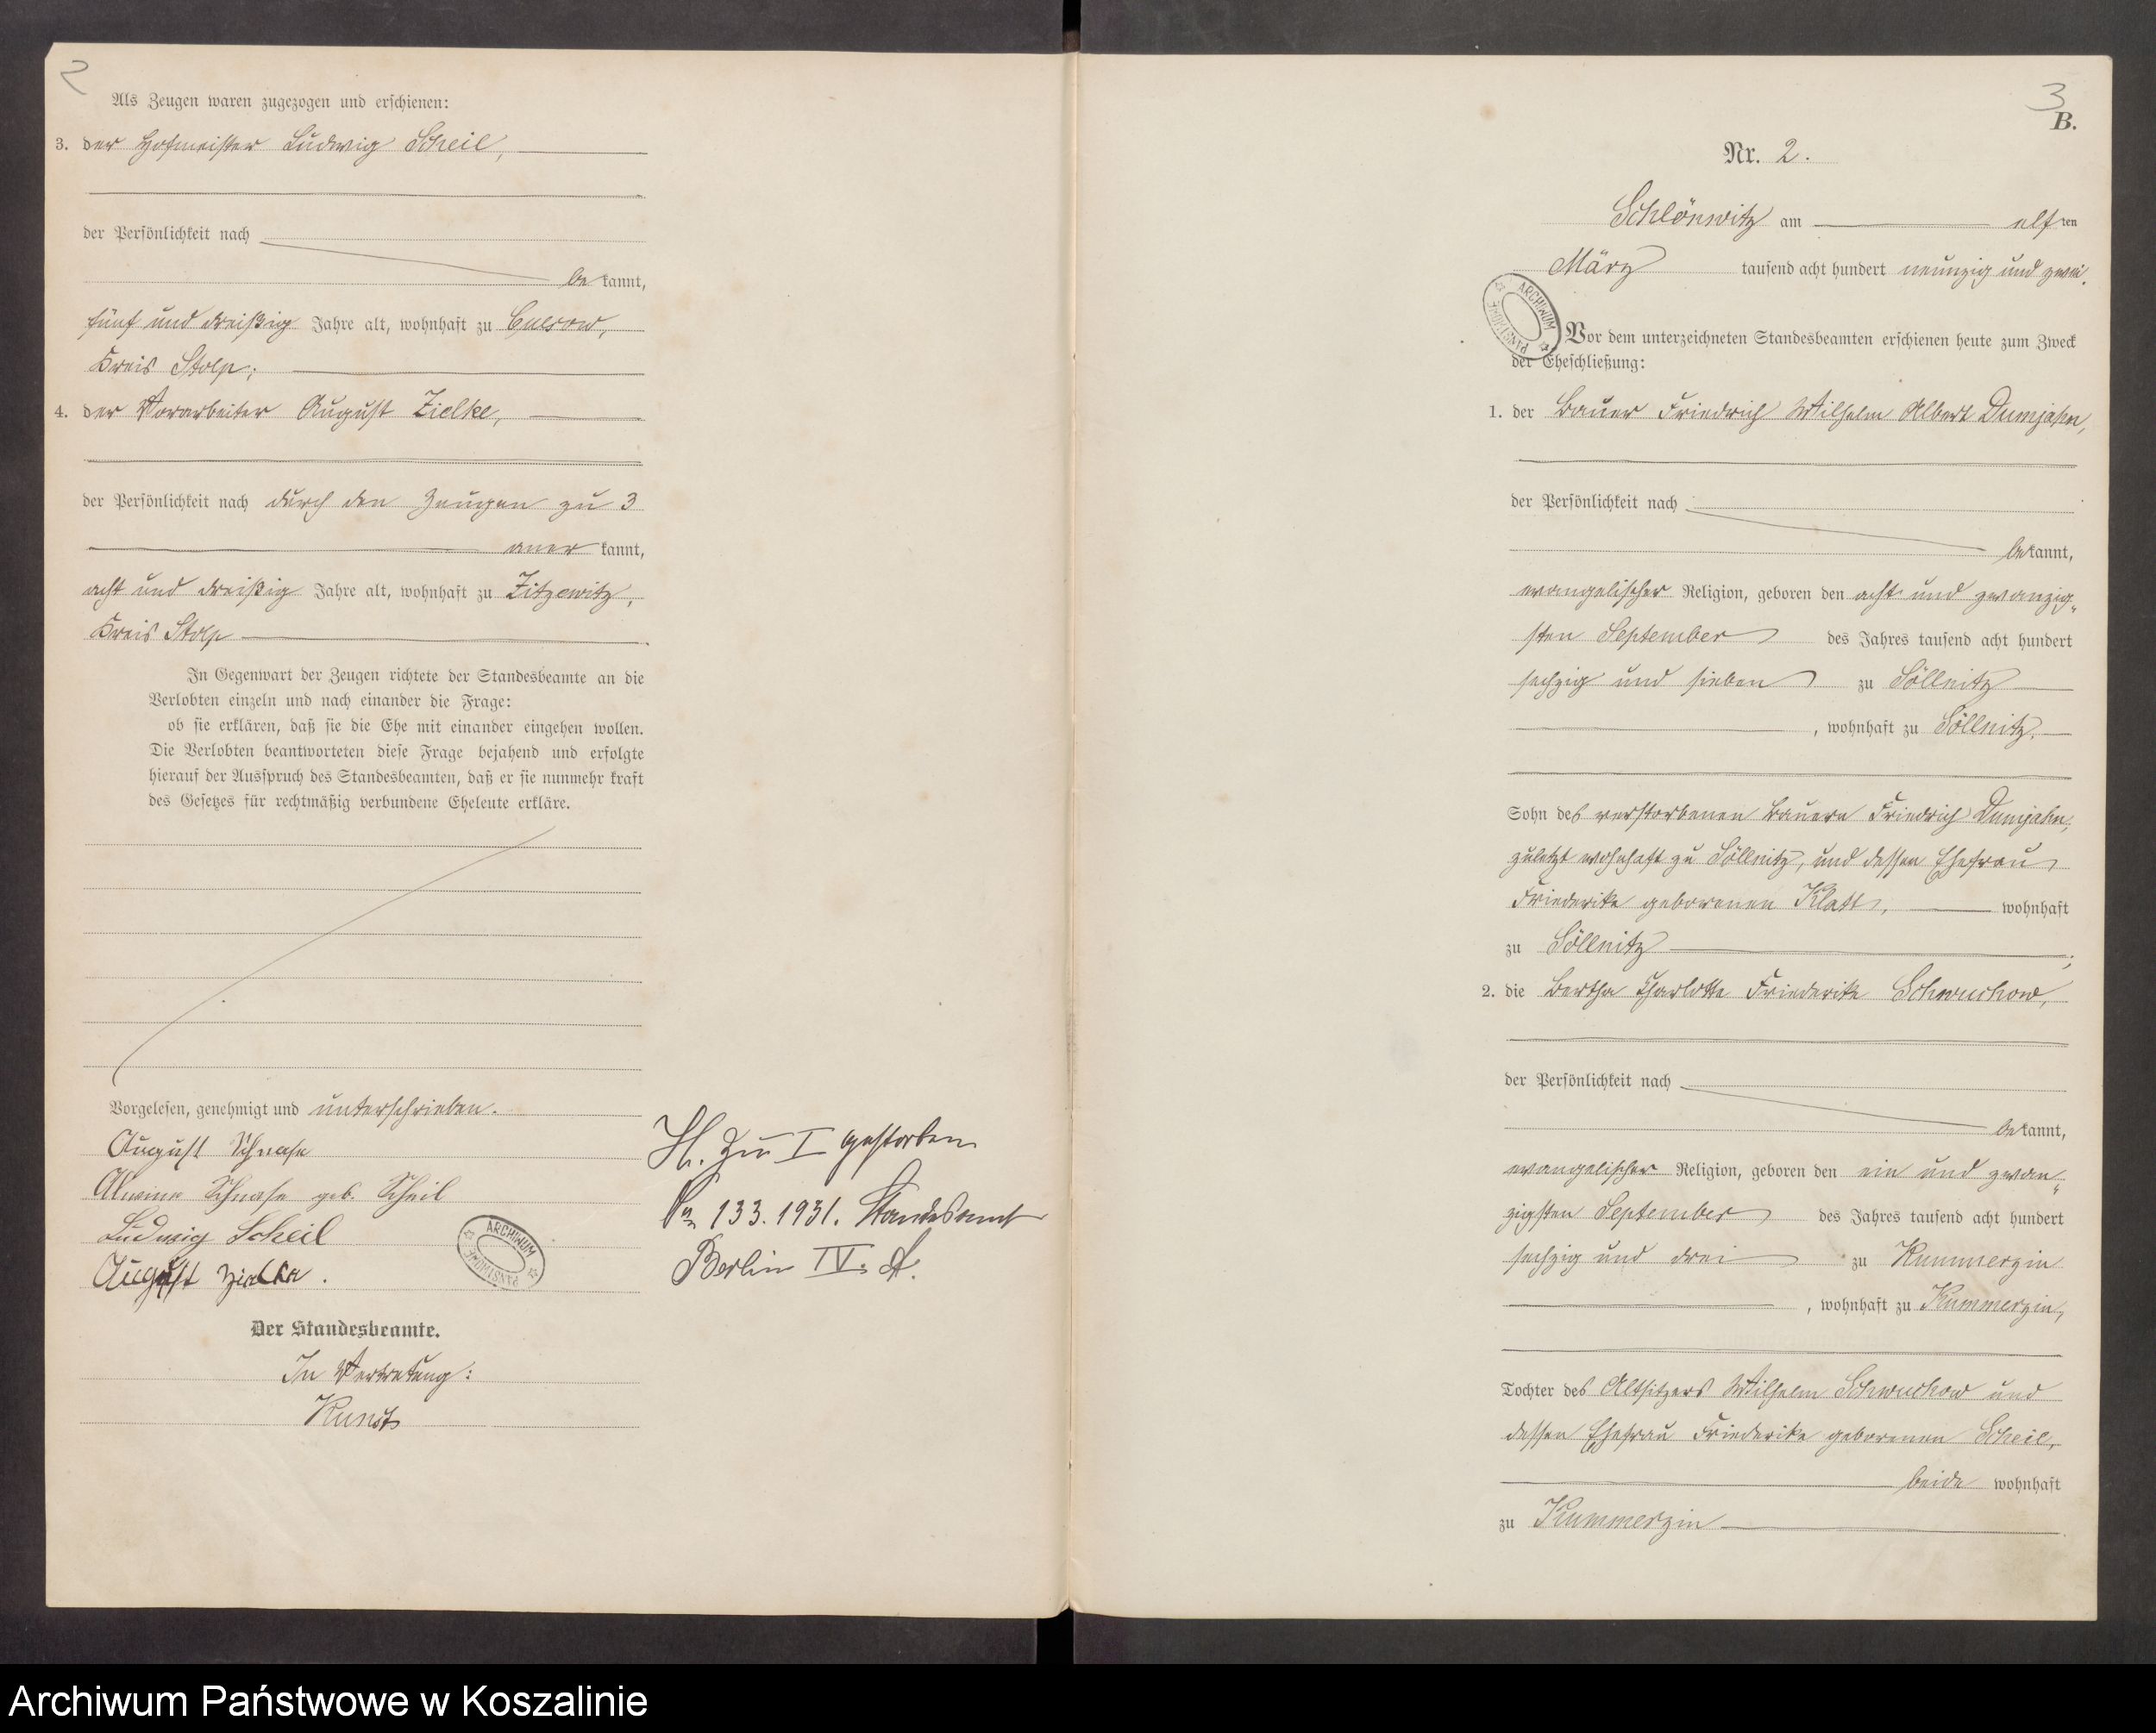 2
Als Zeugen waren zugezogen und erschienen:
3. der Hofmeister Ludwig Scheil,
der Persönlichkeit nach
be kannt,
fünf und dreißig Jahre alt, wohnhaft zu Culsow,
Kreis Stolp;
4. der Vorarbeiter August Zielke,
der Persönlichkeit nach durch den Zeugen zu 3
aner kannt,
acht und dreißig Jahre alt, wohnhaft zu Zitzewitz,
Kreis Stolp
In Gegenwart der Zeugen richtete der Standesbeamte an die
Verlobten einzeln und nach einander die Frage:
ob sie erklären, daß sie die Ehe mit einander eingehen wollen.
Die Verlobten beantworteten diese Frage bejahend und erfolgte
hierauf der Ausspruch des Standesbeamten, daß er sie nunmehr kraft
des Gesetzes für rechtmäßig verbundene Eheleute erkläre.
Vorgelesen, genehmigt und unterschrieben.
August Schnase
Alwine Schnase geb. Scheil
Ludwig Scheil
August Zielke.
ARCHIWUM PAŃSTWOWE
Der Standesbeamte.
In Vertretung:
Kunst
H. zu I gestorben
Nr. 133. 1931. Standesamt
Berlin IV. A.
3
B.
Nr. 2.
Schlönwitz am elf ten
März tausend acht hundert neunzig und zwei.
ARCHIWUM PAŃSTWOWE
Vor dem unterzeichneten Standesbeamten erschienen heute zum Zweck
der Eheschließung:
1. der Bauer Friedrich Wilhelm Albert Dumjahn,
der Persönlichkeit nach
be kannt,
evangelischer Religion, geboren den acht und zwanzig-
sten September des Jahres tausend acht hundert
sechzig und sieben zu Söllnitz
, wohnhaft zu Söllnitz,
Sohn des verstorbenen Bauern Friedrich Dumjahn,
zuletzt wohnhaft zu Söllnitz, und dessen Ehefrau
Friederike geborenen Klatt, wohnhaft
zu Söllnitz ;
2. die Bertha Charlotte Friederike Schwuchow,
der Persönlichkeit nach
be kannt,
evangelischer Religion, geboren den ein und zwan-
zigsten September des Jahres tausend acht hundert
sechzig und drei zu Kummerzin
, wohnhaft zu Kummerzin,
Tochter des Altsitzers Wilhelm Schwuchow und
dessen Ehefrau Friederike geborenen Scheil,
beide wohnhaft
zu Kummerzin
Archiwum Państwowe w Koszalinie